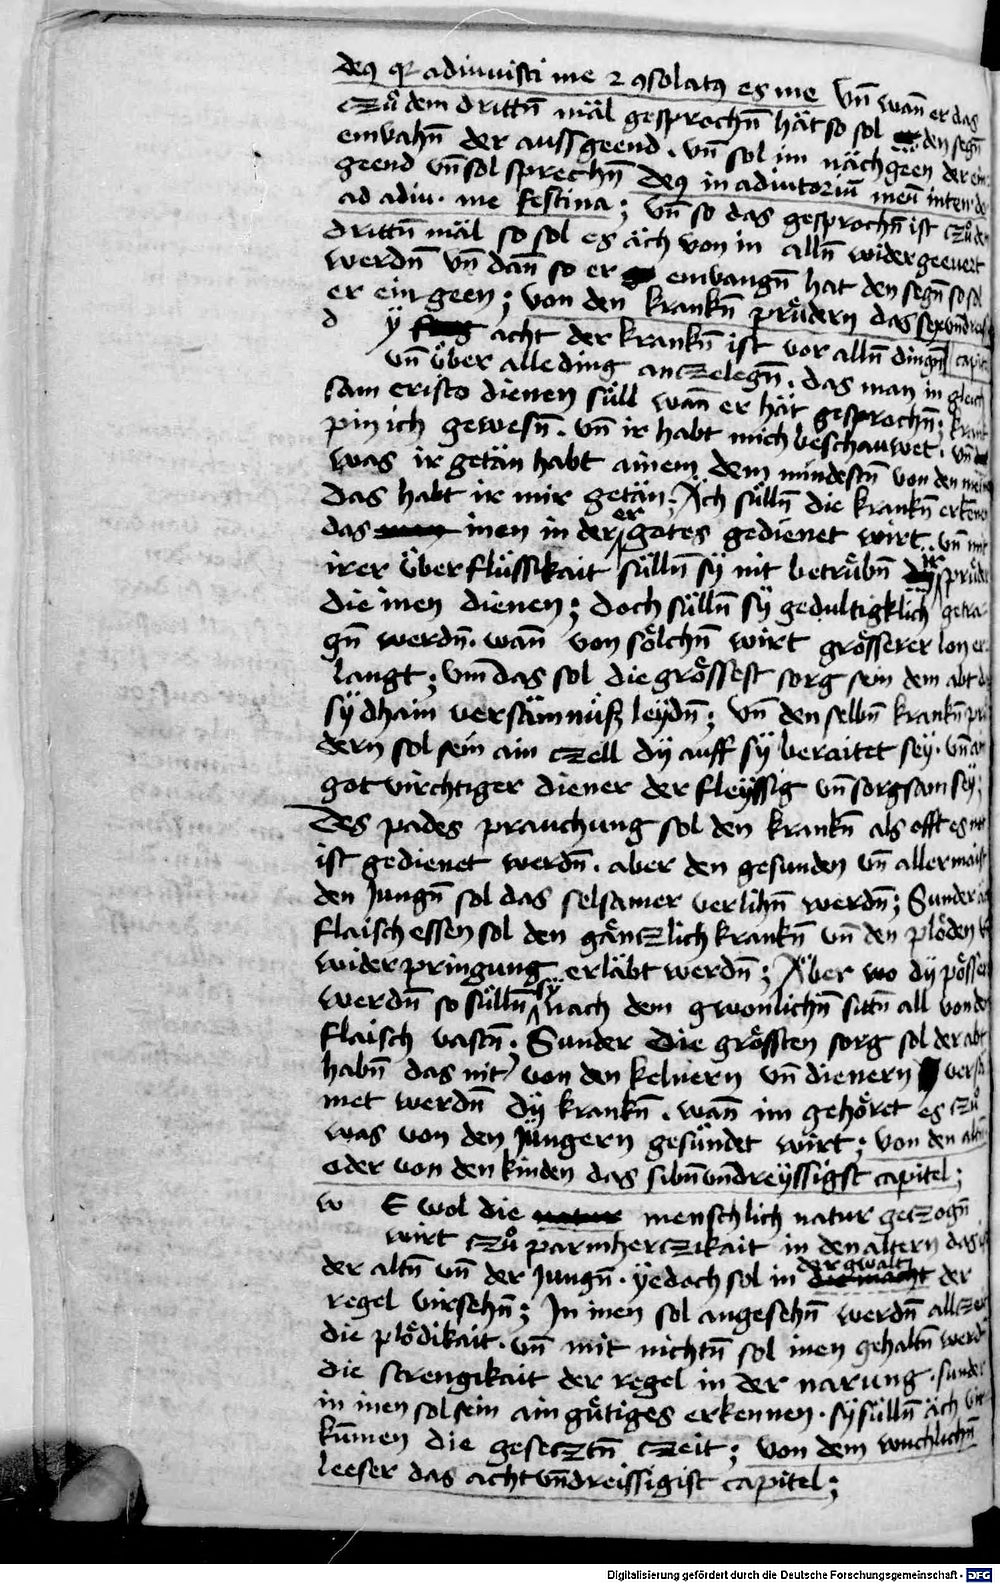 deꝰ qꝛ adiuuisti me ⁊ ꝯsolatꝰ es me Vn̄ wan̄ er das
czů dem drittn̄ mäl gesprochn̄ hät so sol den segn̄
emvahn̄ der aussgeend . vn̄ sol im nächgeen der ein
geend vn̄ sol sprechn̄ Deꝰ in adiutoriū meū intende
ad adiu . me festina ; Vn̄ so das gesprochn̄ ist czů dem
drittn̄ mäl so sol es äch von in alln̄ widergeeuert
werdn̄ vn̄ dan̄ so er emvangn̄ hat den segn̄ so sol
er ein geen ; Von den krankn̄ prüdern das sexvndreis
d y acht der krankn̄ ist vor alln̄ dingn̄ capit
vn̄ über alle ding anczelegn̄ . das man in gleich
sam cristo dienen süll wan̄ er hät gesprochn̄ ; krank
pin ich gewesn̄ . vn̄ ir habt mich beschauwet . vn̄
was ir getän habt ainem dem mindestn̄ von den mein
das habt ir mir getän . Äch sülln̄ die krankn̄ erkenn
das inen in der er gotes gedienet wirt . vn̄ mit
irer überflüssikait sülln̄ sy nit betrübn̄ ire prüder
die inen dienen ; doch sülln̄ sy gedultigklich getra
gn̄ werdn̄ . wan̄ von sölchn̄ wirt grösserer lon er
langt ; Vm das sol die grössest sorg sein dem abt das
sy dhain versämnüß leydn̄ ; Vn̄ den selbn̄ krankn̄ prü
dern sol sein ain czell dy auff sy beraitet sey . vn̄ ain
got virchtiger diener der fleyssig vn̄ sorgsam sey ;
Des pades prauchung sol den krankn̄ als offt es nucz
ist gedienet werdn̄ . aber den gesunden vn̄ allermaist
den Jungn̄ sol das selsamer verlihn̄ werdn̄ ; Sunder auch
flaisch essen sol den gänczlich krankn̄ vn̄ den plöden
widerpringung erläbt werdn̄ ; Aber wo dy pösser
werdn̄ so sülln̄ sy nach dem gwonlichn̄ sittn̄ all von dem
flaisch vastn̄ ; Sunder Die grössten sorg sol der abt
habn̄ das nit von den kelnern vn̄ dienern versä
met werdn̄ dy krankn̄ . wan̄ im gehöret es czů
was von den jüngern gesündet wirt ; Von den altn̄
oder von den kinden das sibn̄vndreyssigst capitel ;
w E wol die natur menschlich natur geczogn̄
wirt czů parmherczikait in den altern das ist
der altn̄ vn̄ der Jungn̄ . yedoch sol in der gwalt der
regel virsehn̄ ; In inen sol angesehn̄ werdn̄ allczeit
die plödikait . vn̄ mit nichtn̄ sol inen gehaltn̄ werdn̄
die strengikait der regel in der narung . sunder
in inen sol sein ain gütiges erkennen . sy sülln̄ äch vir
kumen die gesecztn̄ czeit ; Von dem wuchlichn̄
leeser das achtvn̄dreissigist capitel ;
Digitalisierung gefördert durch die Deutsche Forschungsgemeinschaft - DFG